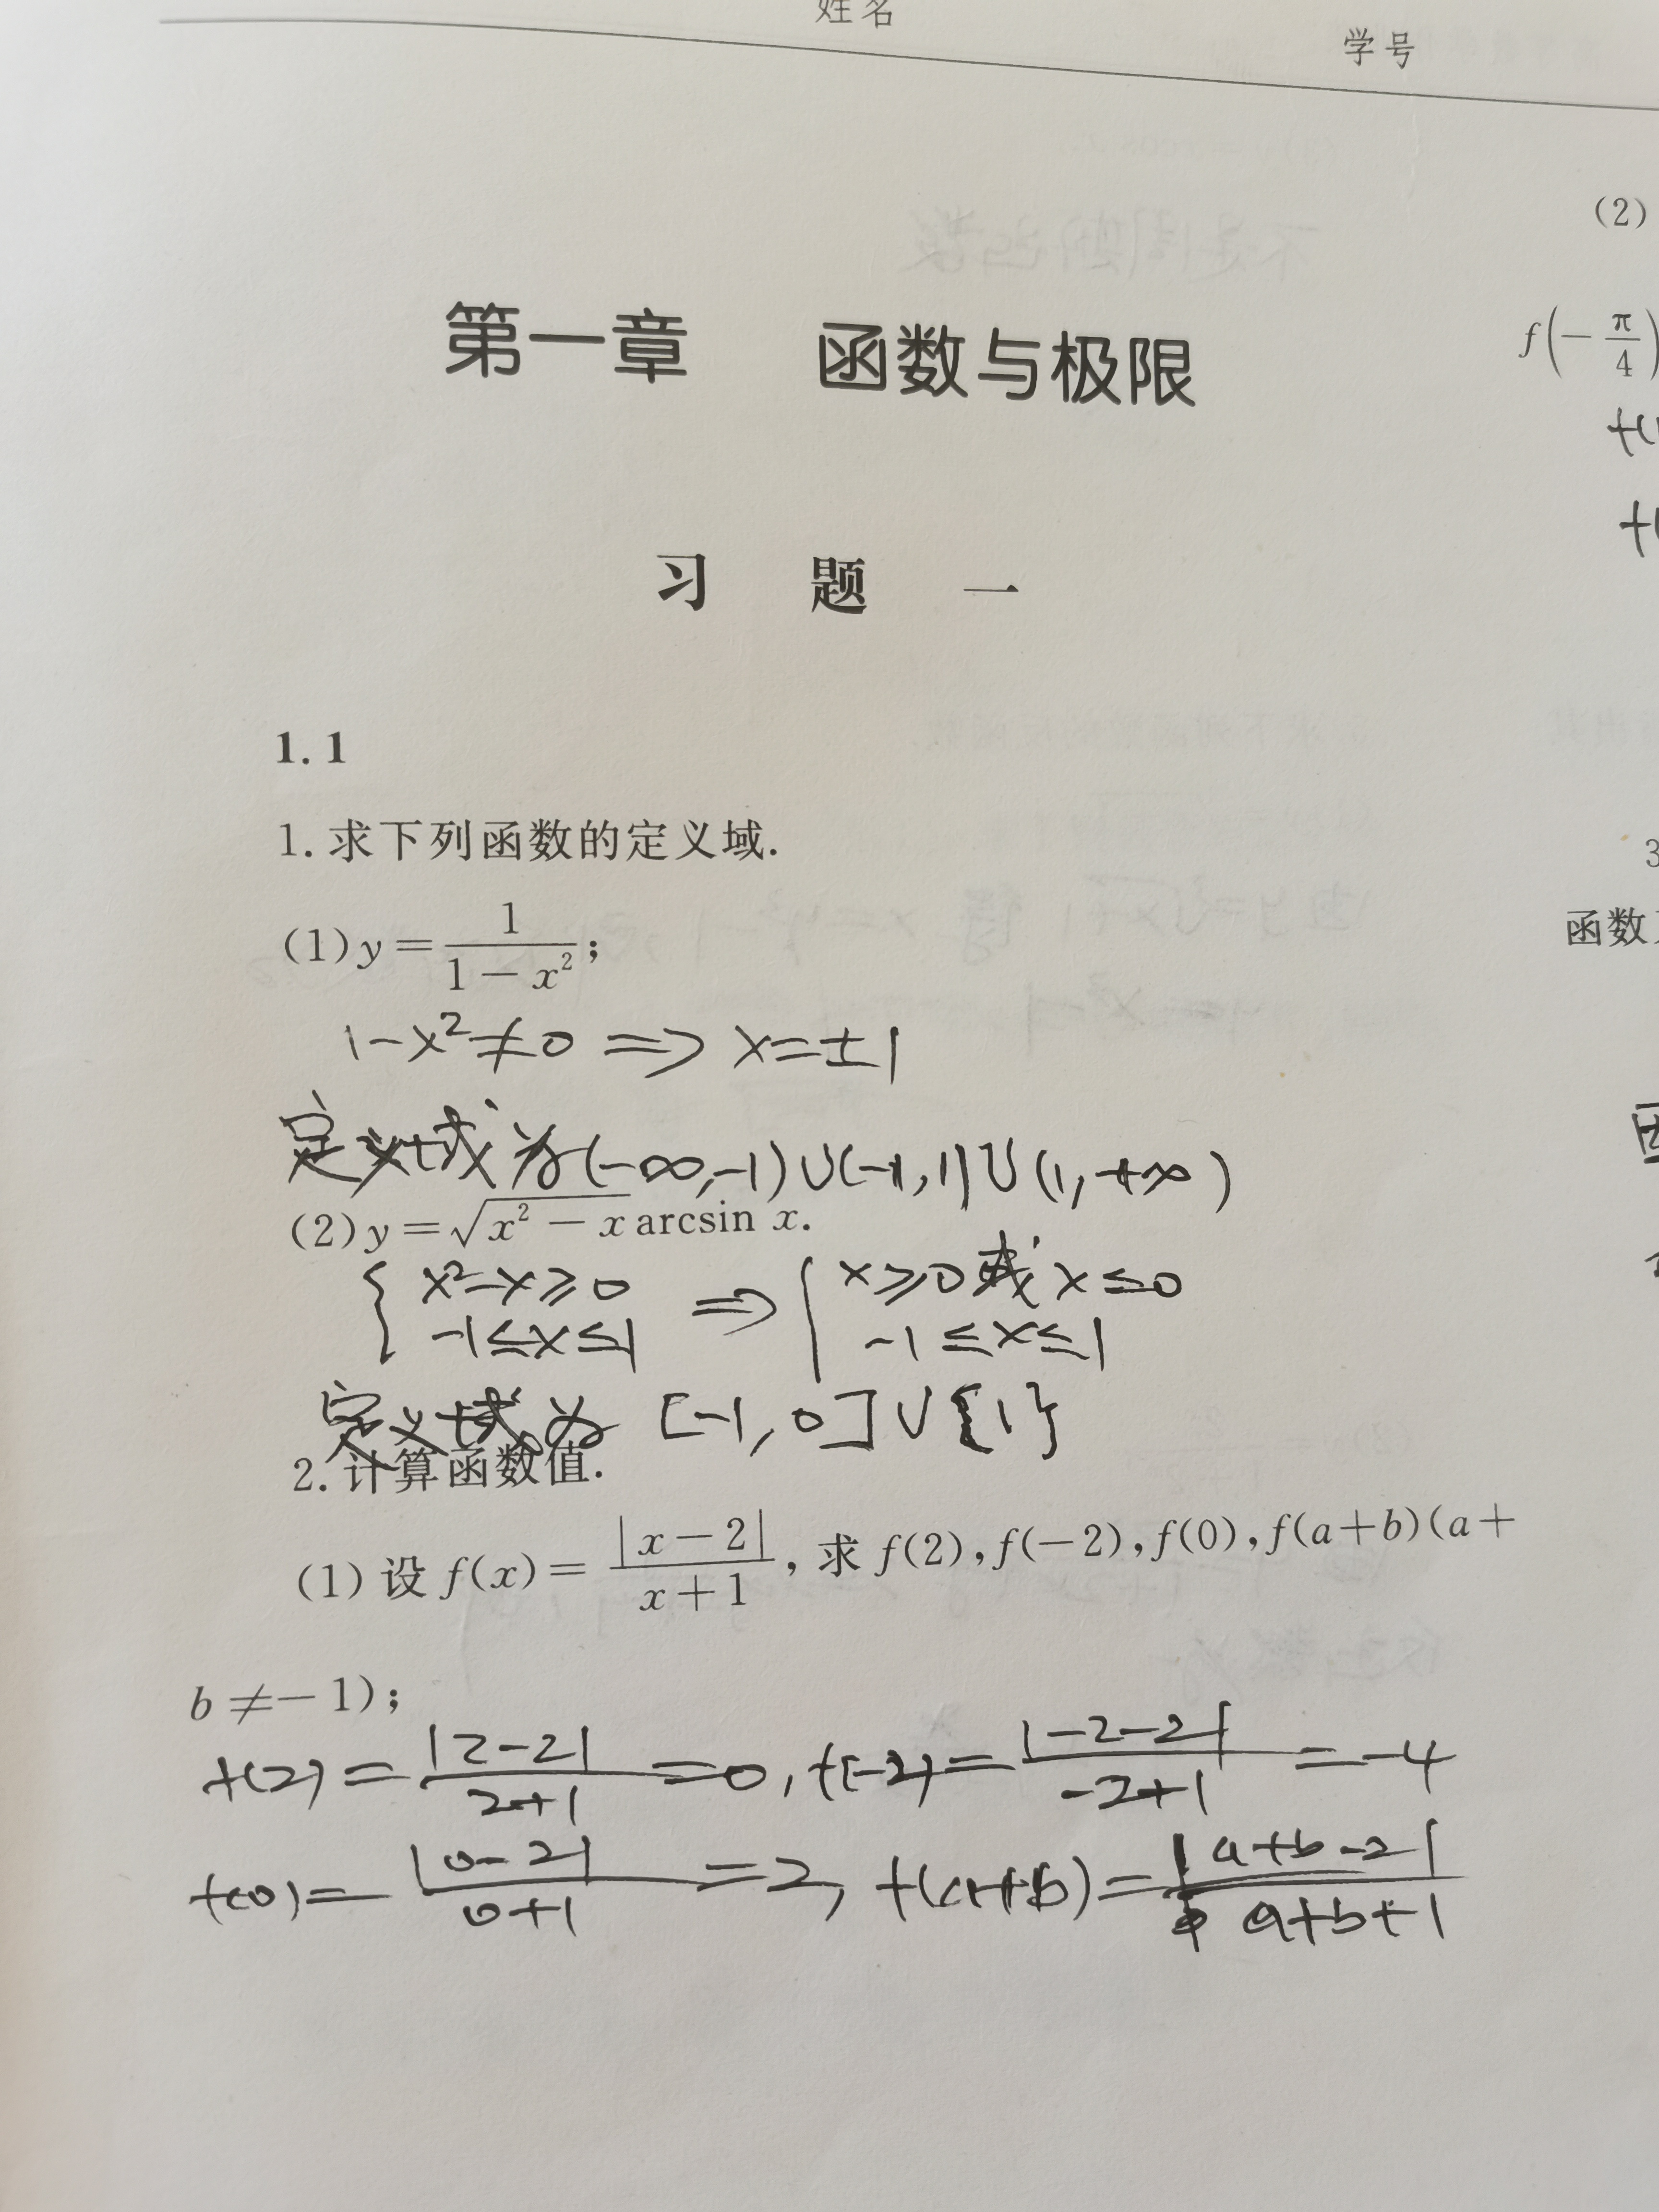 姓名
学号
第一章 函数与极限
习 题 一
1.1
1. 求下列函数的定义域.
(1) y = 1/(1 - x²);
1-x²≠0 ⇒ x=±1
定义域为(-∞,-1)∪(-1,1)∪(1,+∞)
(2) y = √(x² - x) arcsin x.
{ x²-x≥0 ⇒ { x≥0或x≤0
-1≤x≤1 -1≤x≤1
定义域为 [-1,0]∪{1}
2. 计算函数值.
(1) 设 f(x) = |x-2|/(x+1), 求 f(2), f(-2), f(0), f(a+b)(a+
b ≠ -1);
f(2) = |2-2|/(2+1) = 0, f(-2) = |-2-2|/(-2+1) = -4
f(0) = |0-2|/(0+1) = 2, f(a+b) = |a+b-2|/(a+b+1)
(2)
f(-π/4)
f(
f(
3
函数